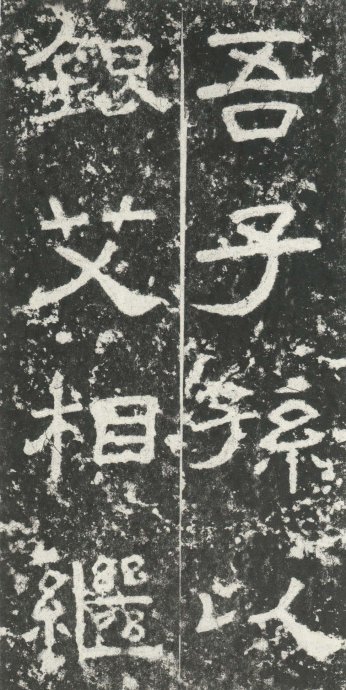 吾子孫以
銀艾相繼